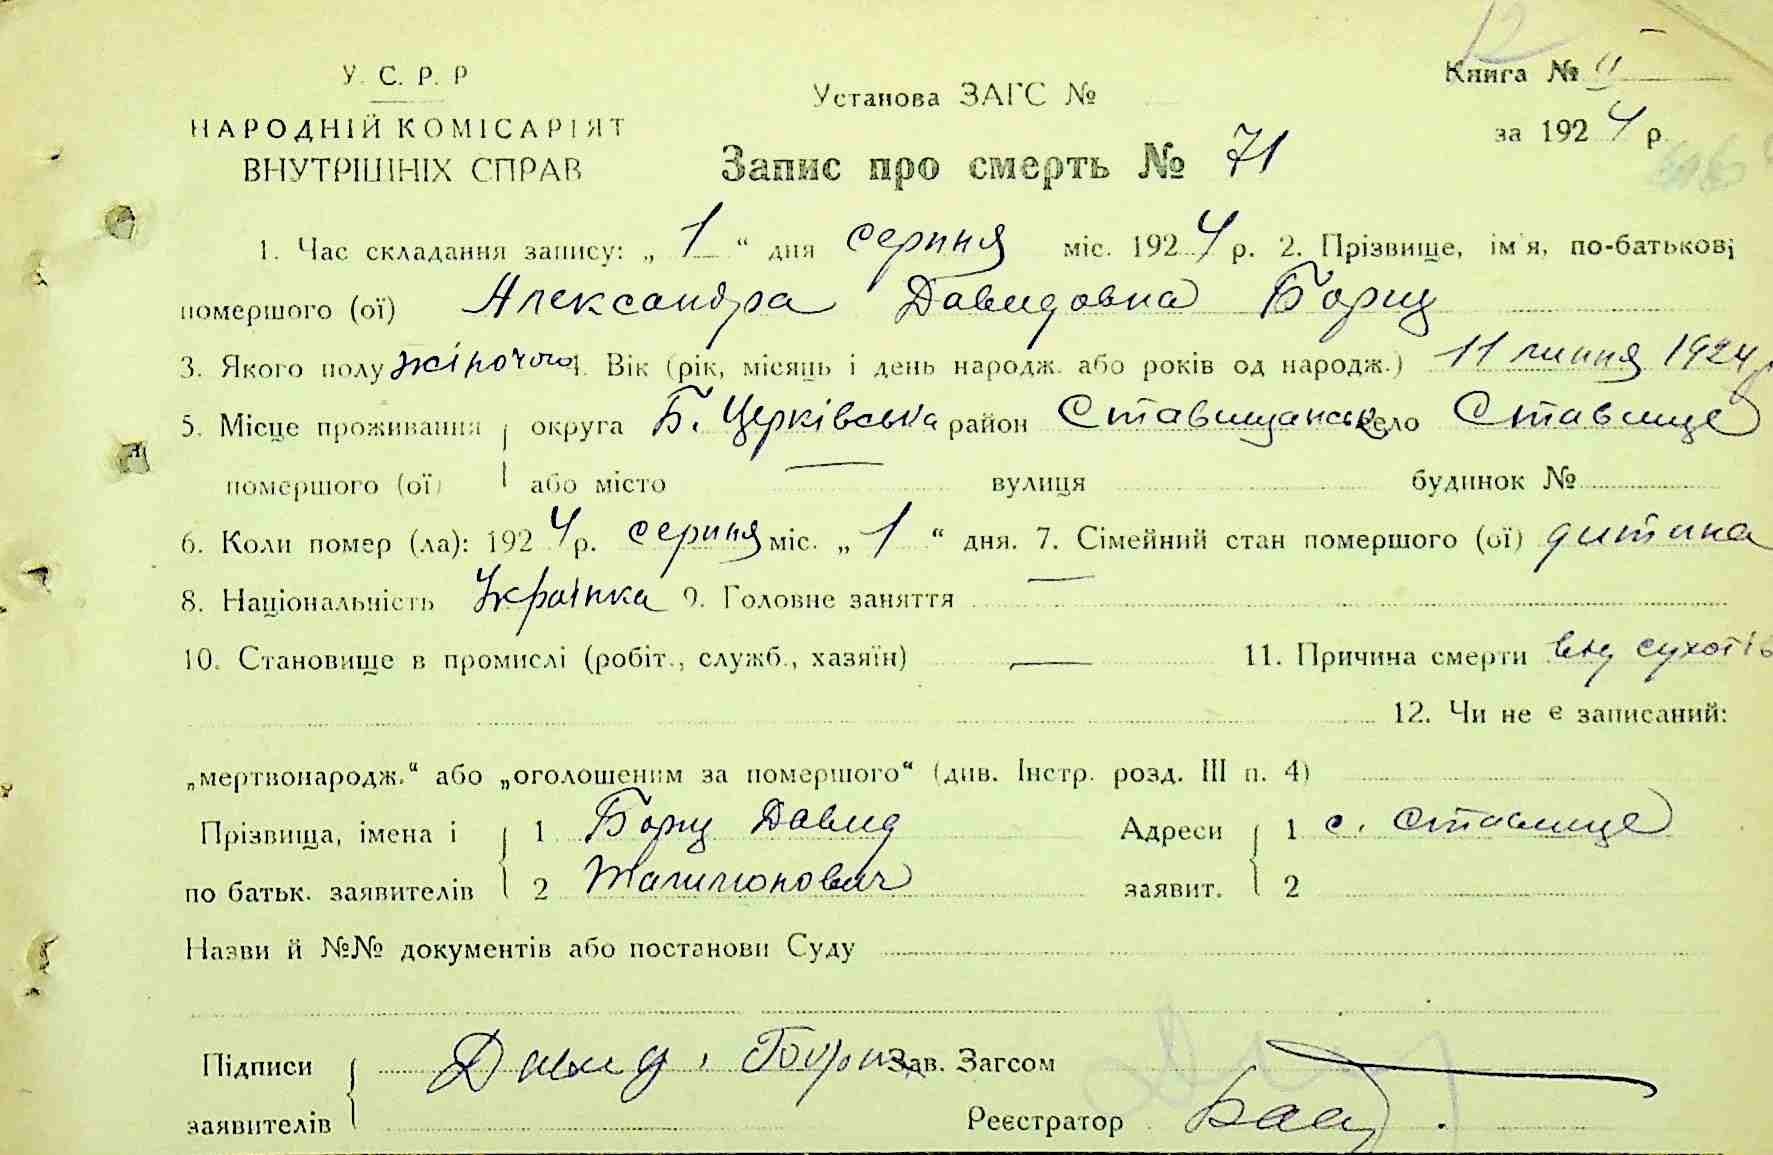 У. С. Р. Р
Книга № II
Установа ЗАГС №
НАРОДНІЙ КОМІСАРІЯТ
за 1924 р.
ВНУТРІШНІХ СПРАВ
Запис про смерть № 71
1. Час складання запису: „ 1 “ дня серпня міс. 1924 р. 2. Прізвище, ім'я, по-батькові
помершого (ої) Александра Давидовна Борщ
3. Якого полу жіночого 4. Вік (рік, місяць і день народж. або років од народж.) 11 липня 1924 р
5. Місце проживання округа Б. Церківська район Ставищанськ село Ставище
помершого (ої) або місто — вулиця будинок №
6. Коли помер (ла): 1924 р. серпня міс. „ 1 “ дня. 7. Сімейний стан помершого (ої) дитина
8. Національність Українка 9. Головне заняття —
10. Становище в промислі (робіт., служб., хазяїн) — 11. Причина смерти від сухотів
12. Чи не є записаний:
„мертвонародж.“ або „оголошеним за помершого“ (див. Інстр. розд. III п. 4)
Прізвища, імена і 1 Борщ Давид Адреси 1 с. Ставище
по батьк. заявителів 2 заявит. 2
Назви й №№ документів або постанови Суду
Підписи Давид Борщ Зав. Загсом
заявителів Реєстратор